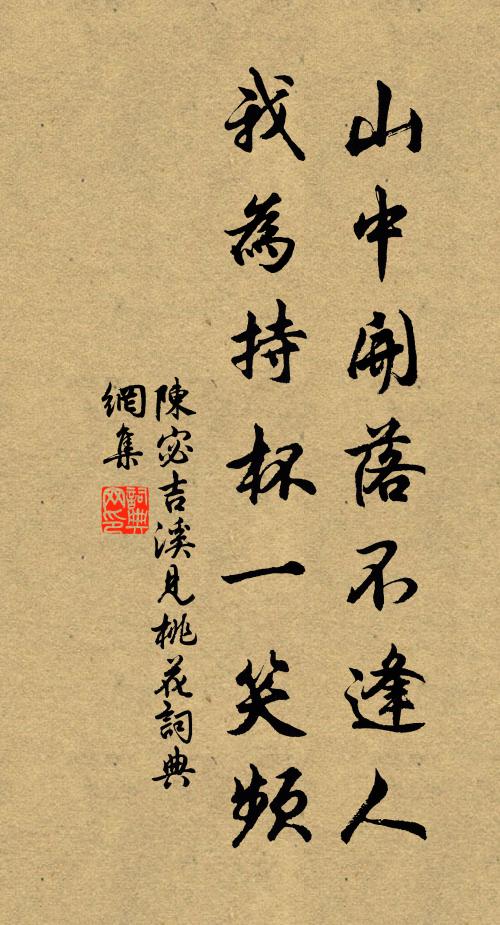 山中開落不逢人
我為持杯一笑頻
陳宓吉溪見桃花詞典
網集
詞典
网印